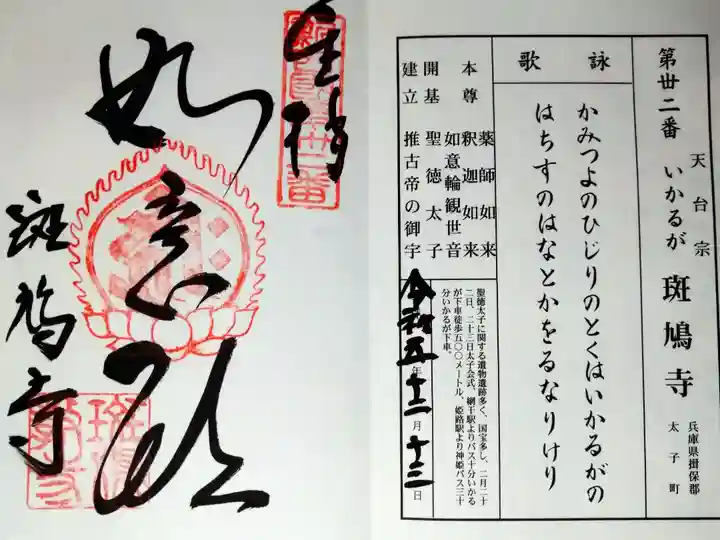 第卅二番 いかるが 斑鳩寺
天台宗
兵庫県揖保郡
太子町
詠歌
かみつよのひじりのとくはいかるがの
はちすのはなとかをるなりけり
本尊 薬師如来
釈迦如来
如意輪観世音
開基 聖徳太子
建立 推古帝の御宇
聖徳太子に関する遺物遺跡多く、国宝多し、二月二十
二日、二十三日太子会式、網干駅よりバス十分いかる
が下車徒歩五〇〇メートル、姫路駅より神姫バス三十
分いかるが下車。
令和五年十二月十三日
奉拝
如意珠
斑鳩寺